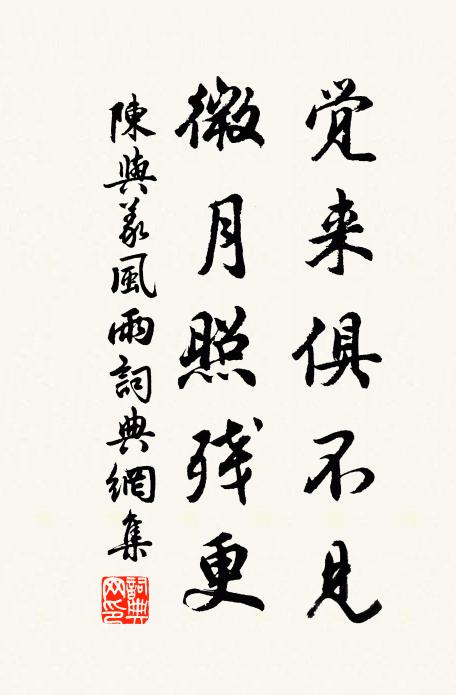 覚来俱不見
微月照残更
陳與義風雨詞典網集
詞典网印